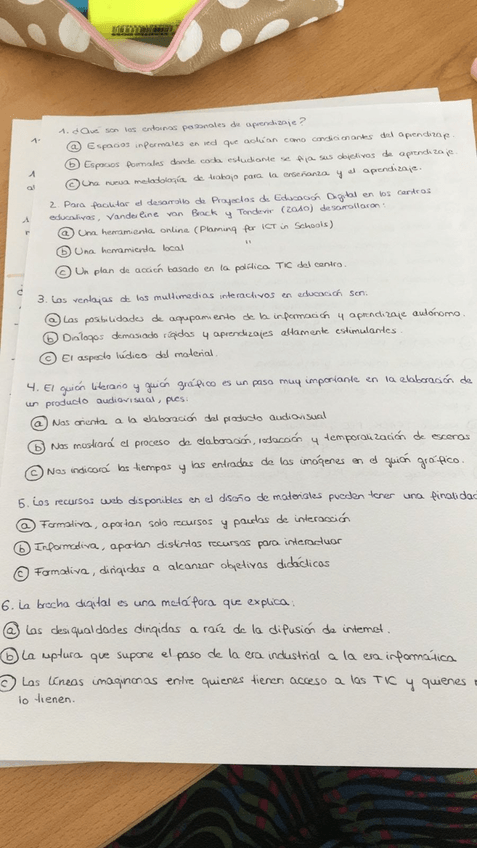 1. ¿Qué son los entornos personales de aprendizaje?
ⓐ Espacios informales en red que actúan como condicionantes del aprendizaje.
ⓑ Espacios formales donde cada estudiante se fija sus objetivos de aprendizaje.
ⓒ Una nueva metodología de trabajo para la enseñanza y el aprendizaje.
2. Para facilitar el desarrollo de Proyectos de Educación Digital en los centros
educativos, Vanderline van Brack y Tondevir (2010) desarrollaron:
ⓐ Una herramienta online (Planning for ICT in Schools)
ⓑ Una herramienta local "
ⓒ Un plan de acción basado en la política TIC del centro.
3. Las ventajas de los multimedias interactivos en educación son:
ⓐ Las posibilidades de agrupamiento de la información y aprendizaje autónomo.
ⓑ Diálogos demasiado rígidos y aprendizajes altamente estimulantes.
ⓒ El aspecto lúdico del material.
4. El guión literario y guión gráfico es un paso muy importante en la elaboración de
un producto audiovisual, pues:
ⓐ Nos orienta a la elaboración del producto audiovisual
ⓑ Nos mostrará el proceso de elaboración, redacción y temporalización de escenas
ⓒ Nos indicará los tiempos y las entradas de las imágenes en el guión gráfico.
5. Los recursos web disponibles en el diseño de materiales pueden tener una finalidad
ⓐ Formativa, aportan solo recursos y pautas de interacción
ⓑ Informativa, aportan distintos recursos para interactuar
ⓒ Formativa, dirigidas a alcanzar objetivos didácticos
6. La brecha digital es una metáfora que explica:
ⓐ Las desigualdades dirigidas a raíz de la difusión de internet.
ⓑ La ruptura que supone el paso de la era industrial a la era informática
ⓒ Las líneas imaginarias entre quienes tienen acceso a las TIC y quienes
lo tienen.